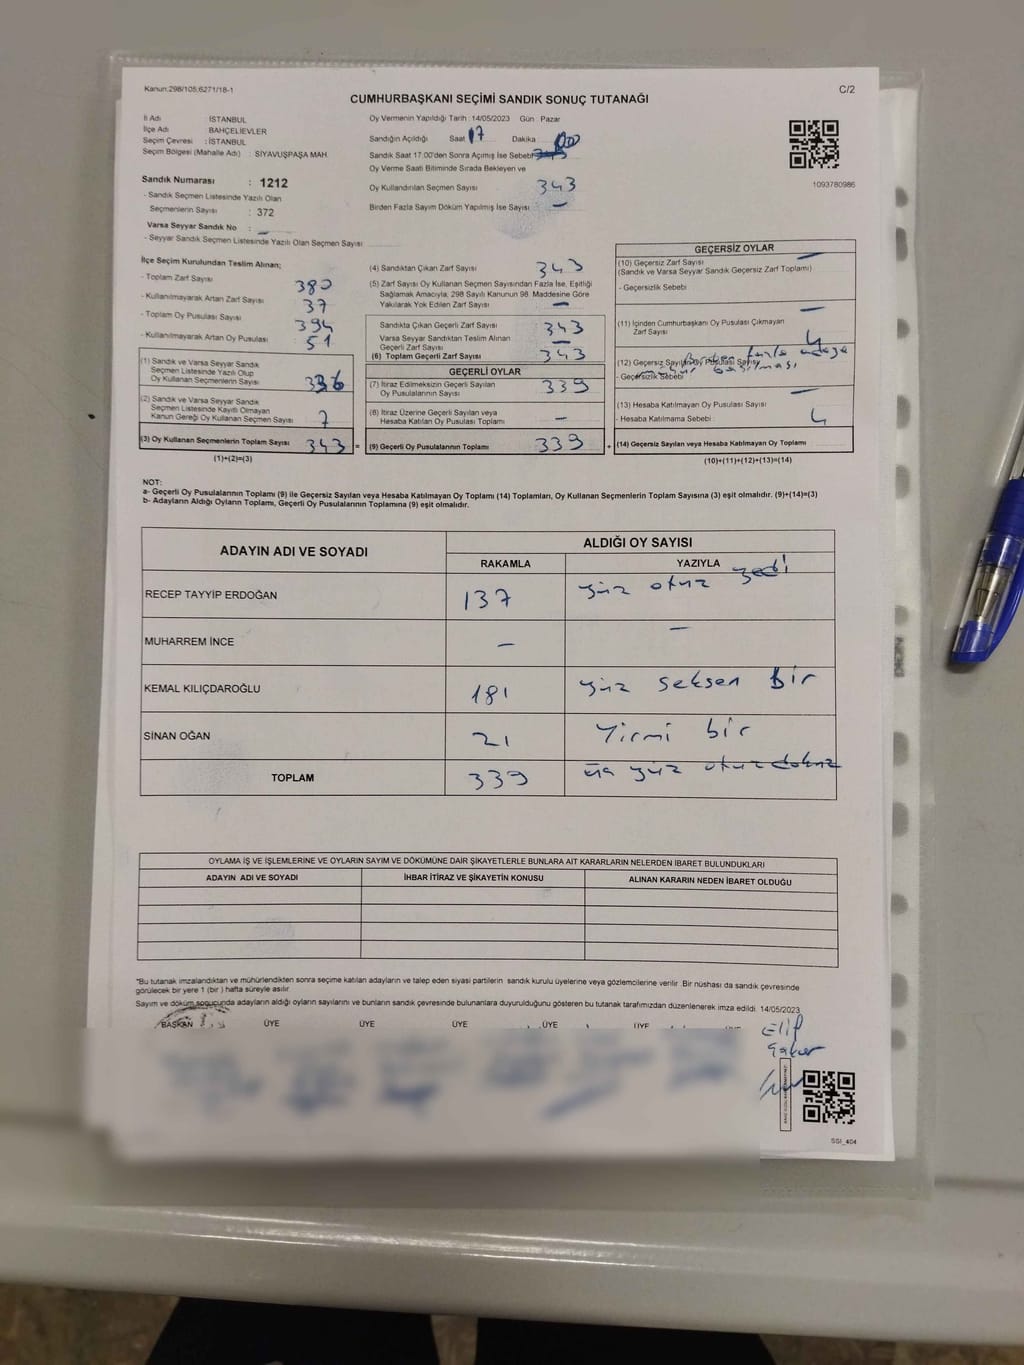 Kanun:298/105;6271/18-1
C/2
CUMHURBAŞKANI SEÇİMİ SANDIK SONUÇ TUTANAĞI
İl Adı : İSTANBUL
İlçe Adı : BAHÇELİEVLER
Seçim Çevresi : İSTANBUL
Seçim Bölgesi (Mahalle Adı) : SİYAVUŞPAŞA MAH.
Sandık Numarası : 1212
- Sandık Seçmen Listesinde Yazılı Olan
Seçmenlerin Sayısı : 372
Varsa Seyyar Sandık No : -
- Seyyar Sandık Seçmen Listesinde Yazılı Olan Seçmen Sayısı
Oy Vermenin Yapıldığı Tarih : 14/05/2023 Gün : Pazar
Sandığın Açıldığı Saat 17 Dakika 00
Sandık Saat 17:00'den Sonra Açılmış İse Sebebi
Oy Verme Saati Bitiminde Sırada Bekleyen ve
Oy Kullandırılan Seçmen Sayısı 343
Birden Fazla Sayım Döküm Yapılmış İse Sayısı -
1093780986
İlçe Seçim Kurulundan Teslim Alınan;
- Toplam Zarf Sayısı 380
- Kullanılmayarak Artan Zarf Sayısı 37
- Toplam Oy Pusulası Sayısı 394
- Kullanılmayarak Artan Oy Pusulası 51
(1) Sandık ve Varsa Seyyar Sandık
Seçmen Listesinde Yazılı Olup
Oy Kullanan Seçmenlerin Sayısı 336
(2) Sandık ve Varsa Seyyar Sandık
Seçmen Listesinde Kayıtlı Olmayan
Kanun Gereği Oy Kullanan Seçmen Sayısı 7
(3) Oy Kullanan Seçmenlerin Toplam Sayısı 343 =
(1)+(2)=(3)
(4) Sandıktan Çıkan Zarf Sayısı 343
(5) Zarf Sayısı Oy Kullanan Seçmen Sayısından Fazla İse, Eşitliği
Sağlamak Amacıyla; 298 Sayılı Kanunun 98. Maddesine Göre
Yakılarak Yok Edilen Zarf Sayısı -
Sandıkta Çıkan Geçerli Zarf Sayısı 343
Varsa Seyyar Sandıktan Teslim Alınan
Geçerli Zarf Sayısı -
(6) Toplam Geçerli Zarf Sayısı 343
GEÇERLİ OYLAR
(7) İtiraz Edilmeksizin Geçerli Sayılan
Oy Pusulalarının Sayısı 339
(8) İtiraz Üzerine Geçerli Sayılan veya
Hesaba Katılan Oy Pusulası Toplamı -
(9) Geçerli Oy Pusulalarının Toplamı 339 +
GEÇERSİZ OYLAR
(10) Geçersiz Zarf Sayısı -
(Sandık ve Varsa Seyyar Sandık Geçersiz Zarf Toplamı)
- Geçersizlik Sebebi
(11) İçinden Cumhurbaşkanı Oy Pusulası Çıkmayan -
Zarf Sayısı
(12) Geçersiz Sayılan Oy Pusulası Sayısı 4
- Geçersizlik Sebebi Birden fazla adaya
mühür basılması
(13) Hesaba Katılmayan Oy Pusulası Sayısı -
- Hesaba Katılmama Sebebi
(14) Geçersiz Sayılan veya Hesaba Katılmayan Oy Toplamı 4
(10)+(11)+(12)+(13)=(14)
NOT:
a- Geçerli Oy Pusulalarının Toplamı (9) ile Geçersiz Sayılan veya Hesaba Katılmayan Oy Toplamı (14) Toplamları, Oy Kullanan Seçmenlerin Toplam Sayısına (3) eşit olmalıdır. (9)+(14)=(3)
b- Adayların Aldığı Oyların Toplamı, Geçerli Oy Pusulalarının Toplamına (9) eşit olmalıdır.
ADAYIN ADI VE SOYADI ALDIĞI OY SAYISI
RAKAMLA YAZIYLA
RECEP TAYYİP ERDOĞAN 137 yüz otuz yedi
MUHARREM İNCE - -
KEMAL KILIÇDAROĞLU 181 yüz seksen bir
SİNAN OĞAN 21 Yirmi bir
TOPLAM 339 üç yüz otuz dokuz
OYLAMA İŞ VE İŞLEMLERİNE VE OYLARIN SAYIM VE DÖKÜMÜNE DAİR ŞİKAYETLERLE BUNLARA AİT KARARLARIN NELERDEN İBARET BULUNDUKLARI
ADAYIN ADI VE SOYADI İHBAR İTİRAZ VE ŞİKAYETİN KONUSU ALINAN KARARIN NEDEN İBARET OLDUĞU
*Bu tutanak imzalandıktan ve mühürlendikten sonra seçime katılan adayların ve talep eden siyasi partilerin sandık kurulu üyelerine veya gözlemcilerine verilir. Bir nüshası da sandık çevresinde
görülecek bir yere 1 (bir ) hafta süreyle asılır.
Sayım ve döküm sonucunda adayların aldığı oyların sayılarını ve bunların sandık çevresinde bulunanlara duyurulduğunu gösteren bu tutanak tarafımızdan düzenlenerek imza edildi. 14/05/2023
BAŞKAN ÜYE ÜYE ÜYE ÜYE ÜYE ÜYE
Elif
SSI_404